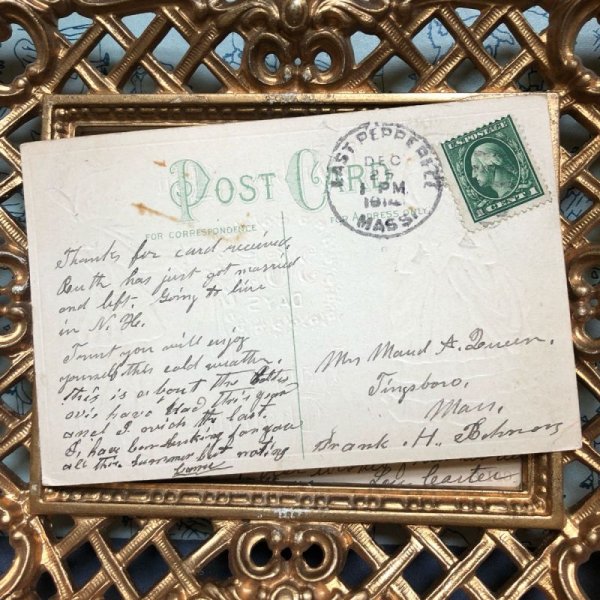 POST CARD
FOR CORRESPONDENCE
FOR ADDRESS ONLY
EAST PEPPERELL
DEC
1 PM
1914
MASS.
U.S. POSTAGE
1 CENT 1
Thanks for card received,
Ruth has just got married
and left. Going to live
in N. H.
Trust you will enjoy
yourself this cold weather.
this is about the
have had this year
and I wish the last
I, have ben looking for you
all this summer but noting
came
Mrs Maud A. Queen,
Tingsboro,
Mass.
Frank H.
Carter